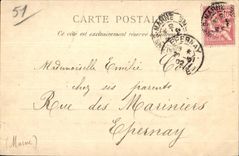 51
CARTE POSTALE
Ce côté est exclusivement réservé
EPERNAY
MARNE
Mademoiselle Emilie
chez ses parents
Rue des Mariniers
Epernay
(Marne)